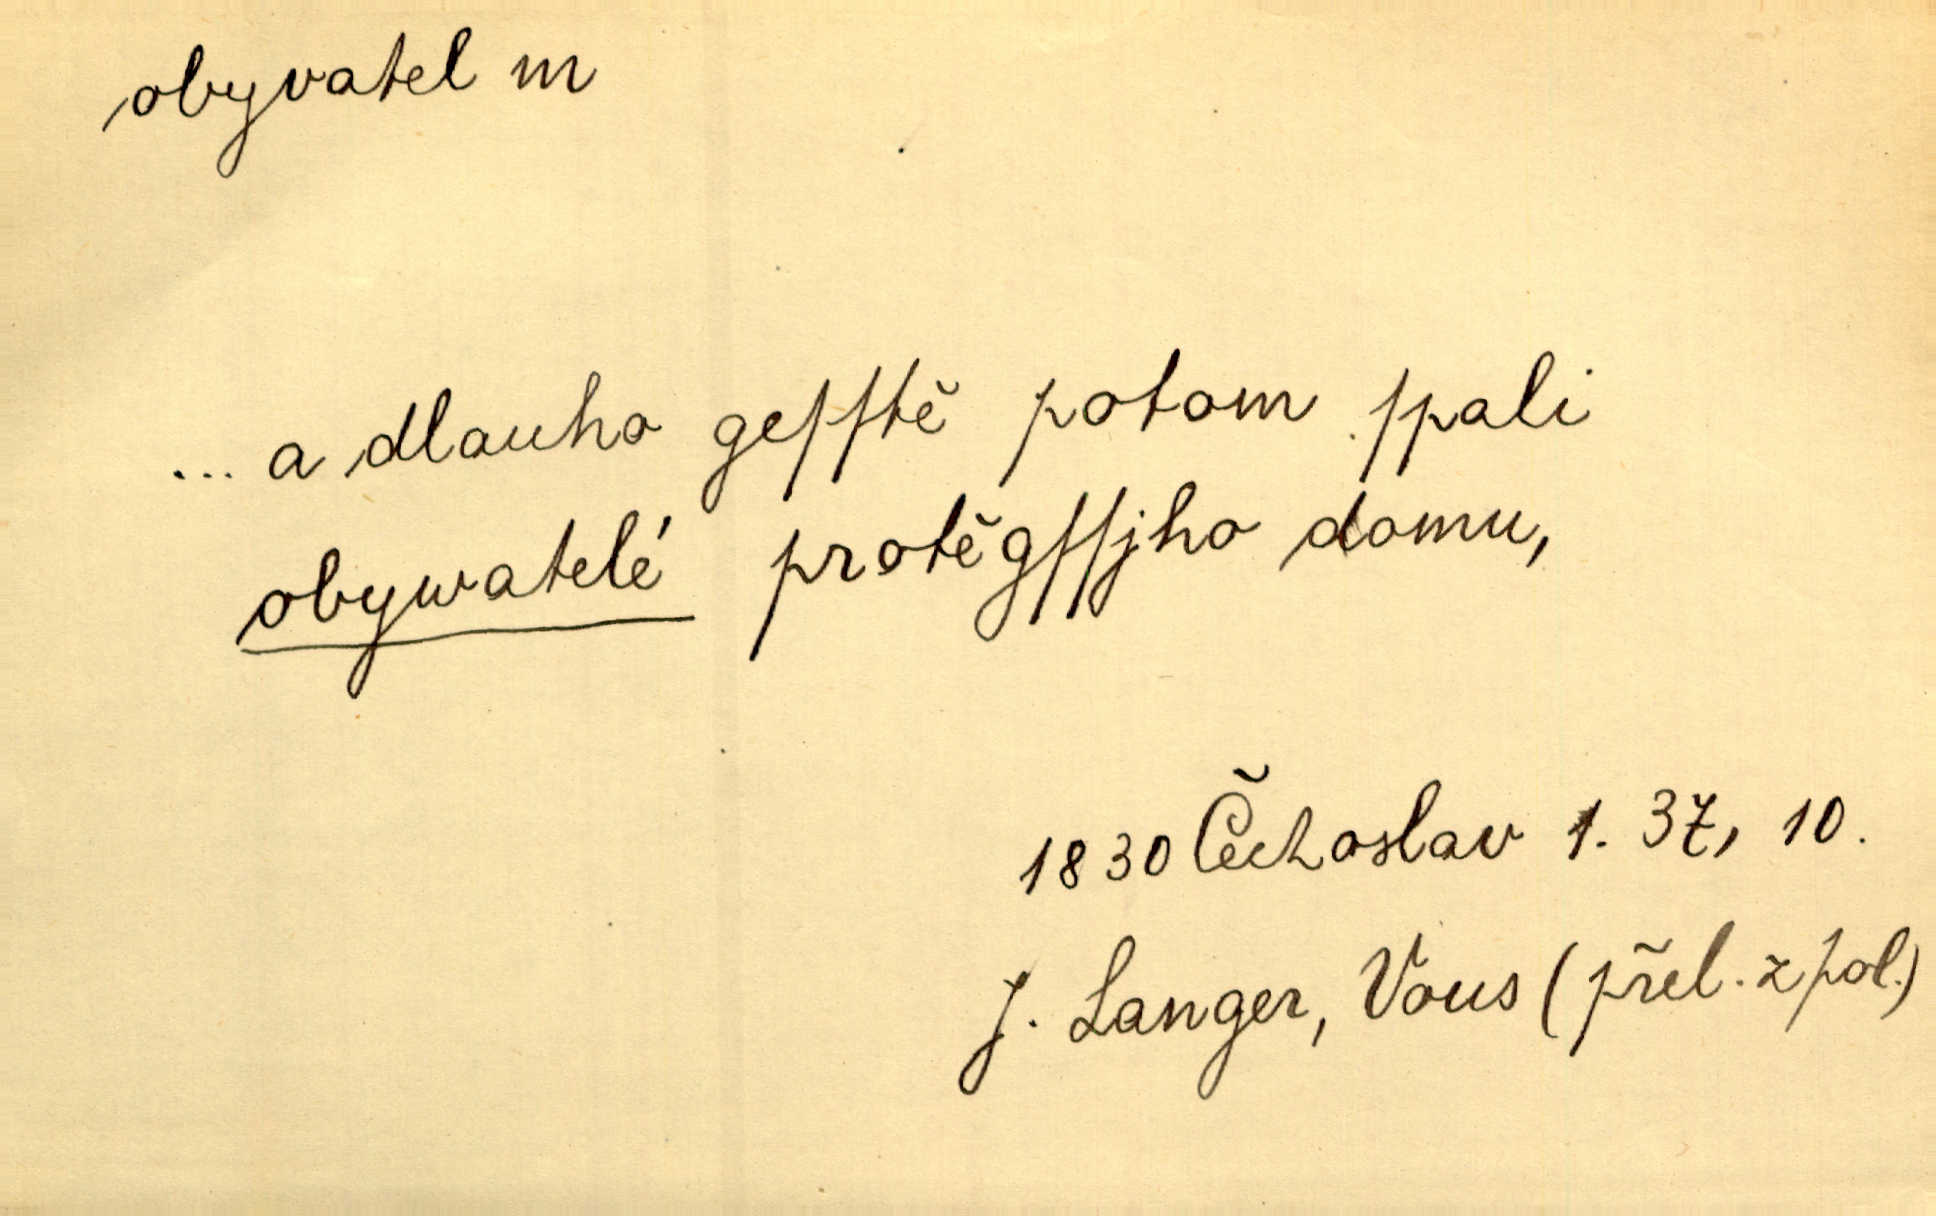 obyvatel m
... a dlouho geſſtě potom ſpali
obywatelé protěgſſjho domu,
1830 Čechoslav 1. 37, 10.
J. Langer, Vous (přel. z pol.)